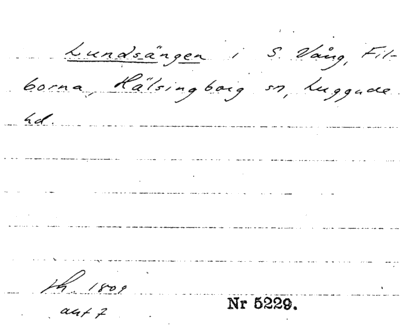 Lundsängen i S. Vång, Fil-
borna, Hälsingborg sn, Luggude
hd.
sh. 1809
akt 7
Nr 5229.